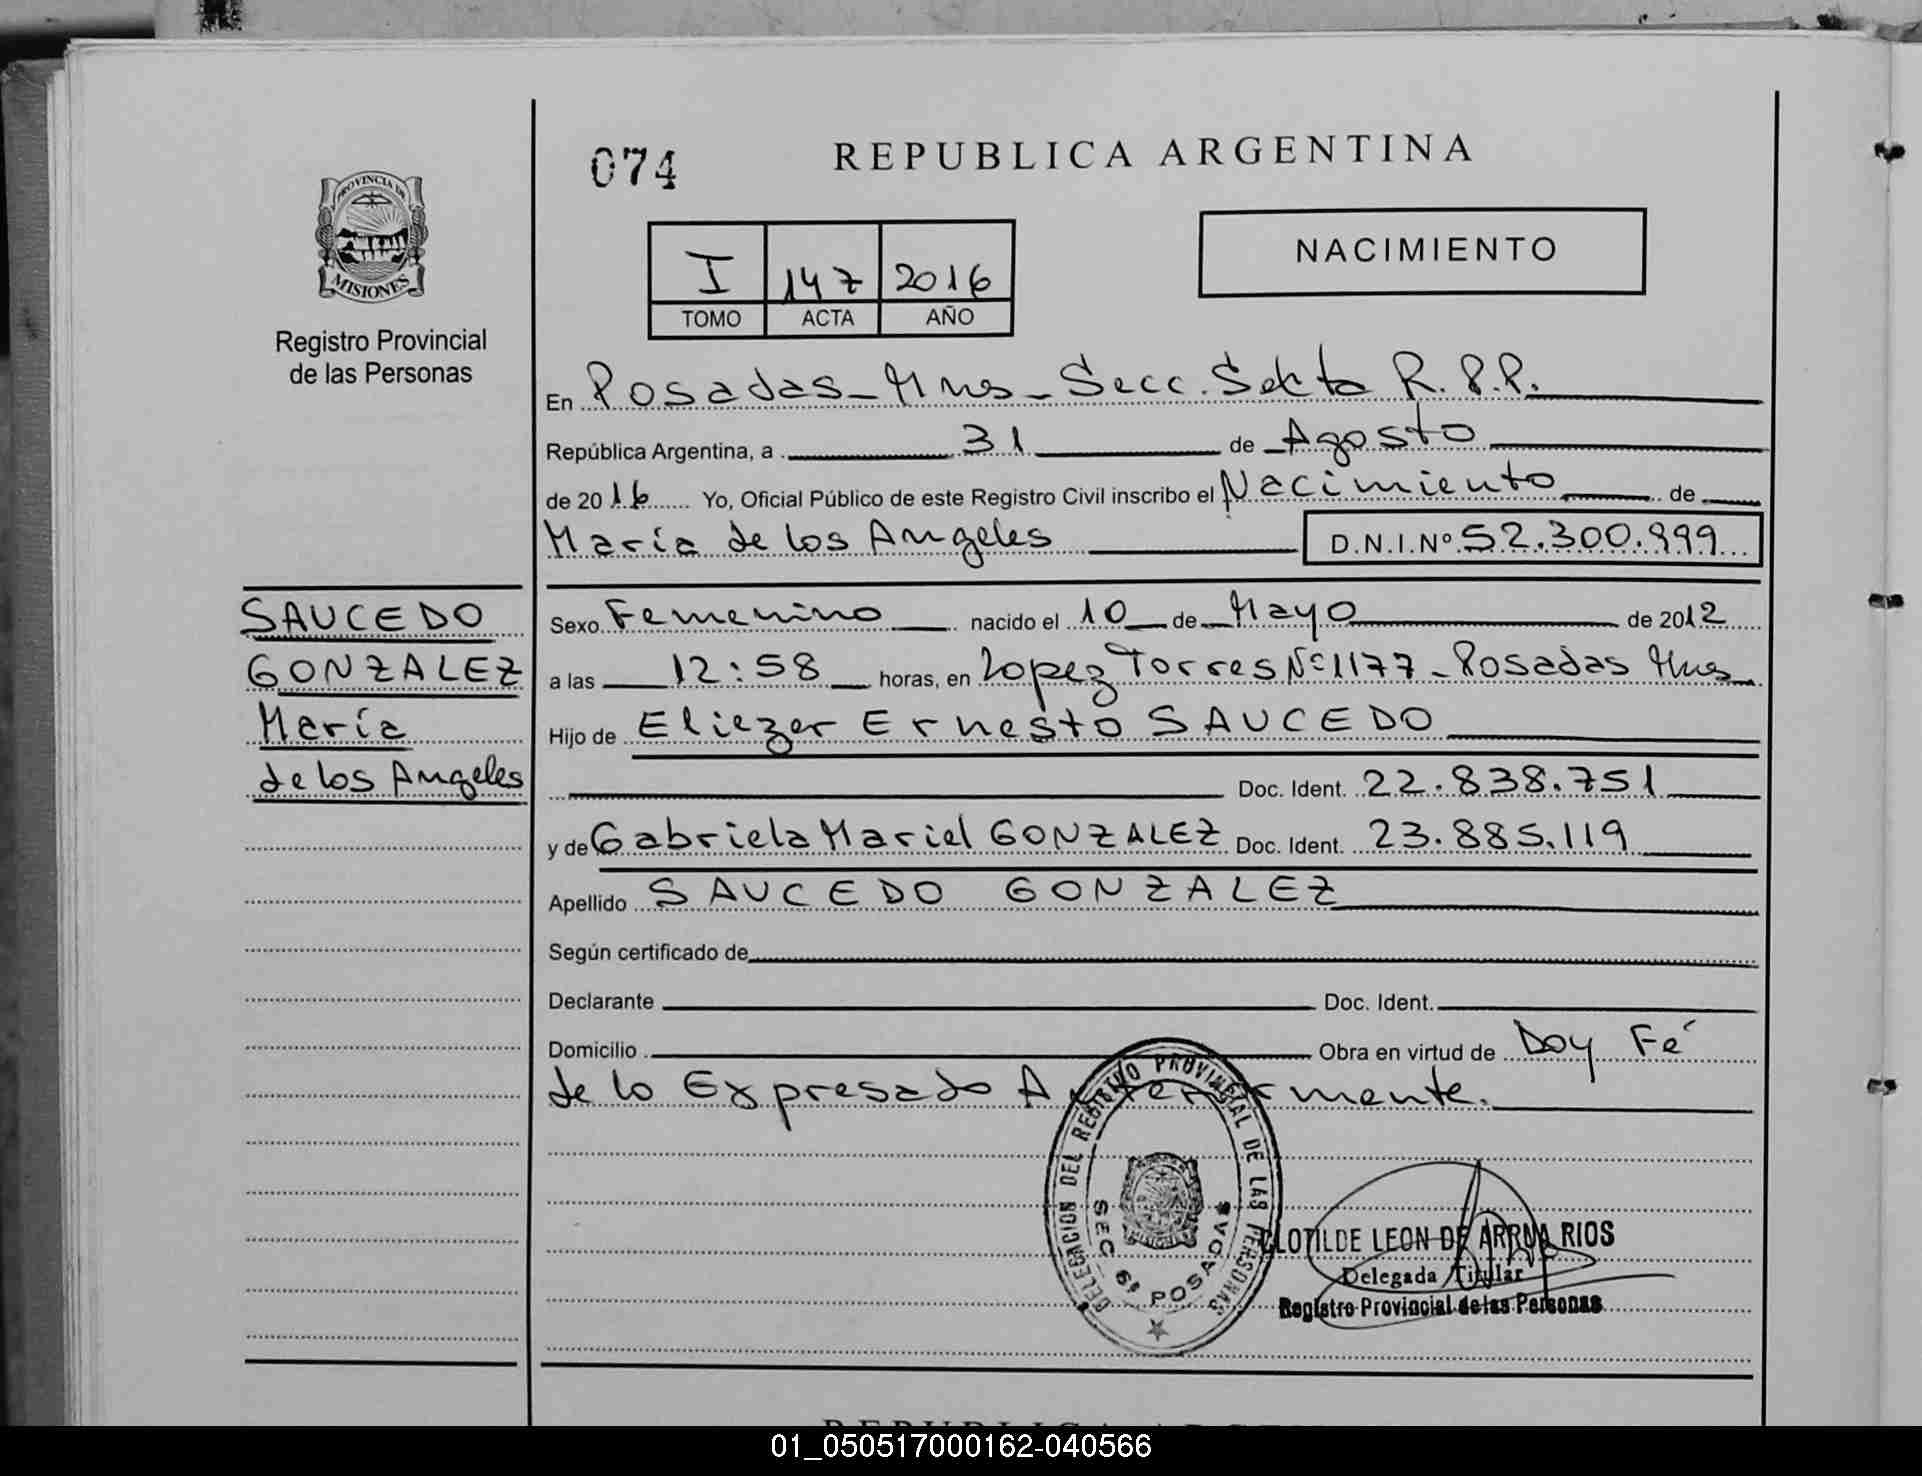 074
REPUBLICA ARGENTINA
PROVINCIA DE
MISIONES
Registro Provincial
de las Personas
I 147 2016
TOMO ACTA AÑO
NACIMIENTO
En Posadas - Mnes - Secc. Sexta R.P.P.
República Argentina, a 31 de Agosto
de 2016 Yo, Oficial Público de este Registro Civil inscribo el Nacimiento de
María de los Angeles D.N.I.Nº 52.300.999
SAUCEDO
GONZALEZ
María
de los Angeles
Sexo Femenino nacido el 10 de Mayo de 2012
a las 12:58 horas, en Lopez Torres Nº 1177 - Posadas Mnes
Hijo de Eliezer Ernesto SAUCEDO
Doc. Ident. 22.838.751
y de Gabriela Mariel GONZALEZ Doc. Ident. 23.885.119
Apellido SAUCEDO GONZALEZ
Según certificado de
Declarante Doc. Ident.
Domicilio Obra en virtud de Doy Fé
de lo Expresado Anteriormente.
DELEGACION DEL REGISTRO PROVINCIAL DE LAS PERSONAS
SEC 6ª POSADAS
CLOTILDE LEON DE ARRUA RIOS
Delegada Titular
Registro Provincial de las Personas
01_050517000162-040566